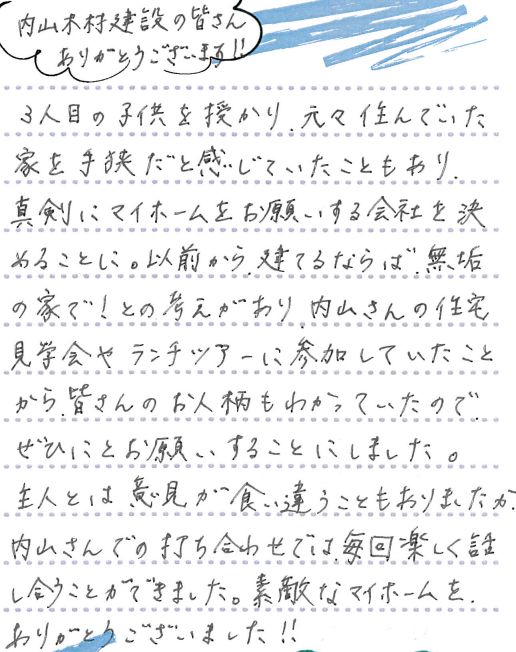 内山木材建設の皆さん
ありがとうございます!!
3人目の子供を授かり、元々住んでいた
家を手狭だと感じていたこともあり、
真剣にマイホームをお願いする会社を決
めることに。以前から、建てるならば、無垢
の家で!との考えがあり、内山さんの住宅
見学会やランチツアーに参加していたこと
から、皆さんのお人柄もわかっていたので、
ぜひにとお願いすることにしました。
主人とは意見が食い違うこともありましたが、
内山さんでの打ち合わせでは、毎回楽しく話
し合うことができました。素敵なマイホームを、
ありがとうございました!!